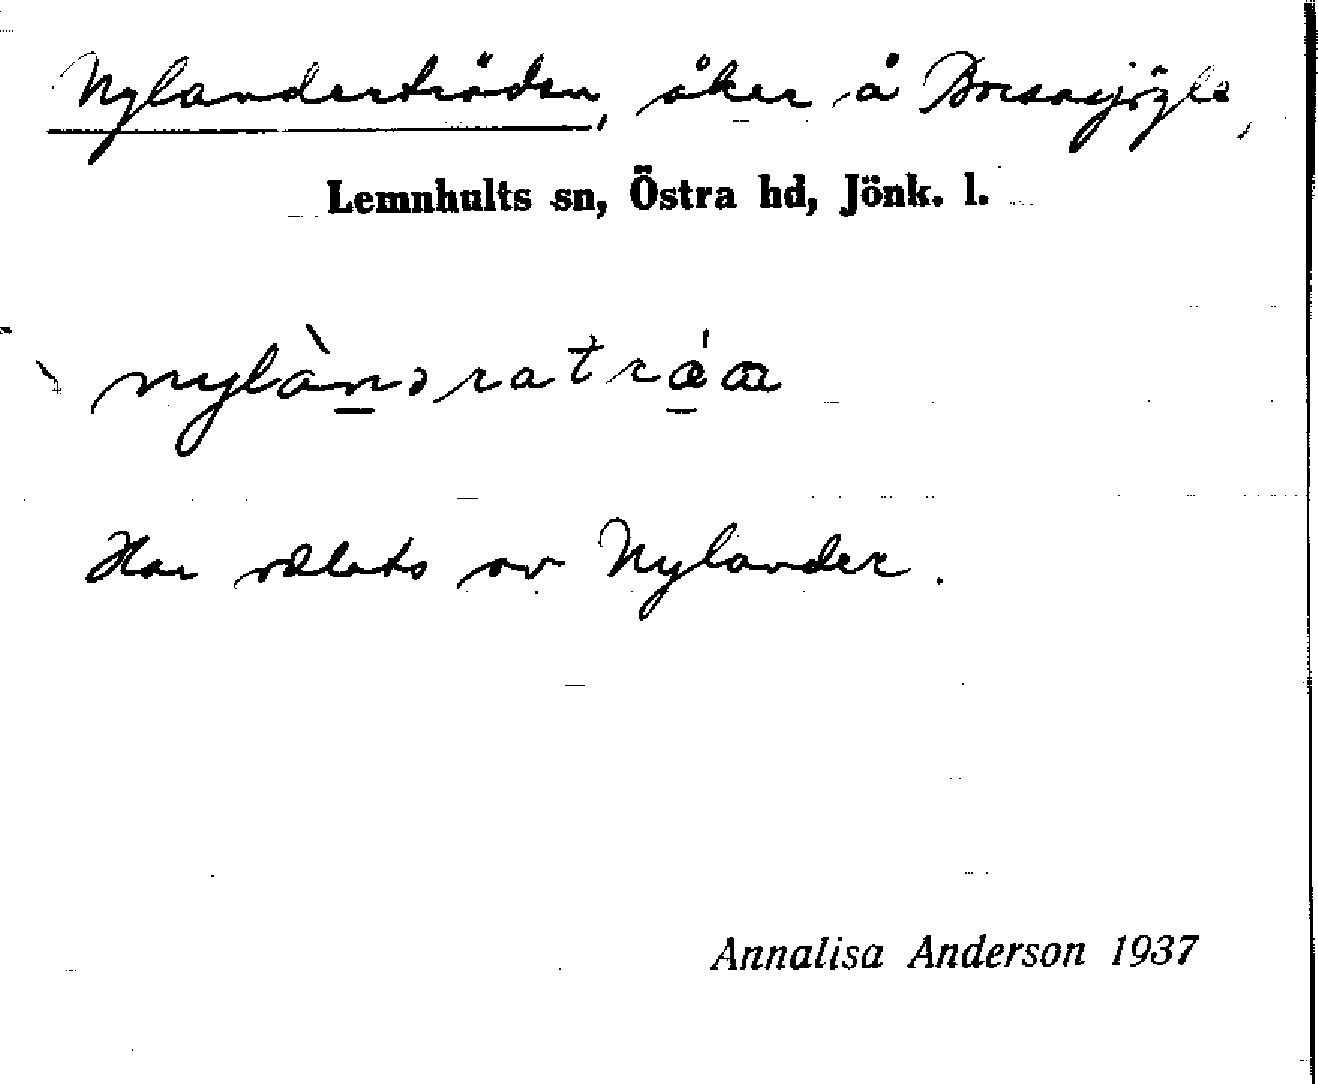 Nylanderträden, åker å
Lemnhults sn, Östra hd, Jönk. l.
Har välets av Nylander.
Annalisa Anderson 1937